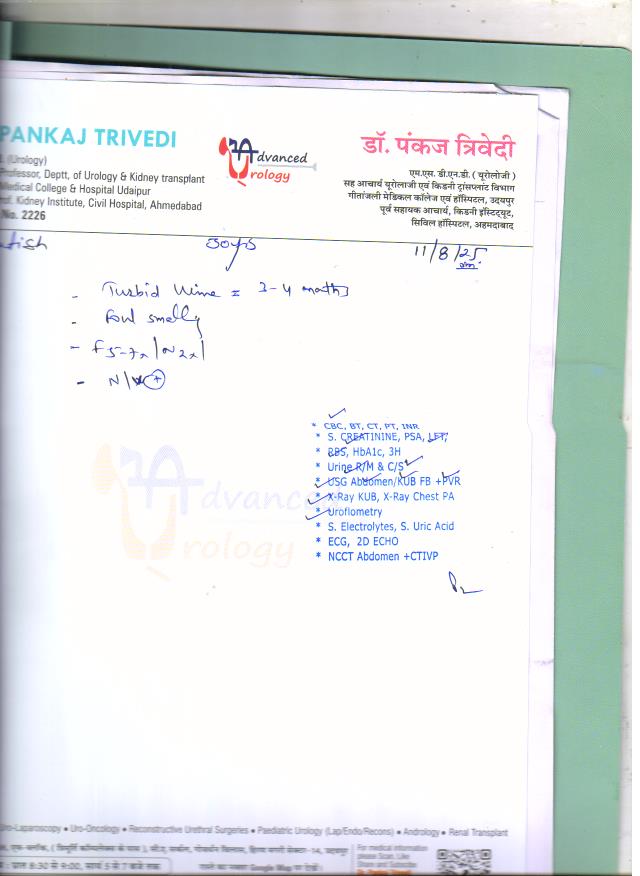 PANKAJ TRIVEDI
(Urology)
Professor, Deptt. of Urology & Kidney transplant
Medical College & Hospital Udaipur
Prof. Kidney Institute, Civil Hospital, Ahmedabad
No. 2226
Advanced
Urology
डॉ. पंकज त्रिवेदी
एम.एस. डी.एन.बी. ( यूरोलोजी )
सह आचार्य यूरोलाजी एवं किडनी ट्रांसप्लांट विभाग
गीतांजली मेडिकल कॉलेज एवं हॉस्पिटल, उदयपुर
पूर्व सहायक आचार्य, किडनी इंस्टिट्यूट,
सिविल हॉस्पिटल, अहमदाबाद
11/8/25
- Turbid Urine = 3-4 months
- Foul smelly
- F5-7x/N2x/
* CBC, BT, CT, PT, INR
* S. CREATININE, PSA, LFT,
* RBS, HbA1c, 3H
* Urine R/M & C/S
* USG Abdomen/KUB FB +PVR
* X-Ray KUB, X-Ray Chest PA
* Uroflometry
* S. Electrolytes, S. Uric Acid
* ECG, 2D ECHO
* NCCT Abdomen +CTIVP
Advanced
Urology
Uro-Laparoscopy • Uro-Oncology • Reconstructive Urethral Surgeries • Paediatric Urology (Lap/Endo/Recons) • Andrology • Renal Transplant
For medical information
please Scan, Like
Share and Subscribe